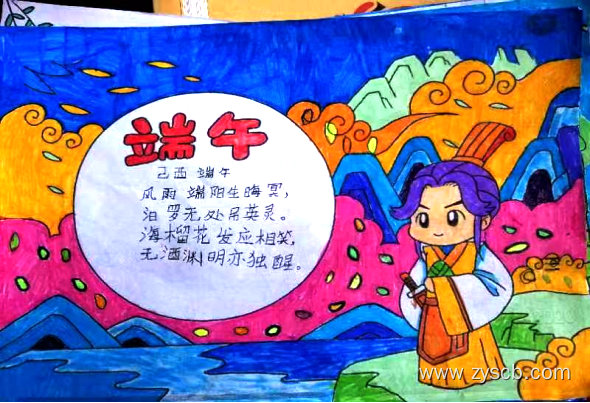 端午
己西 端午
风雨端阳生晦冥，
汨罗无处吊英灵。
海榴花发应相笑，
无酒渊明亦独醒。
www.zyscb.com